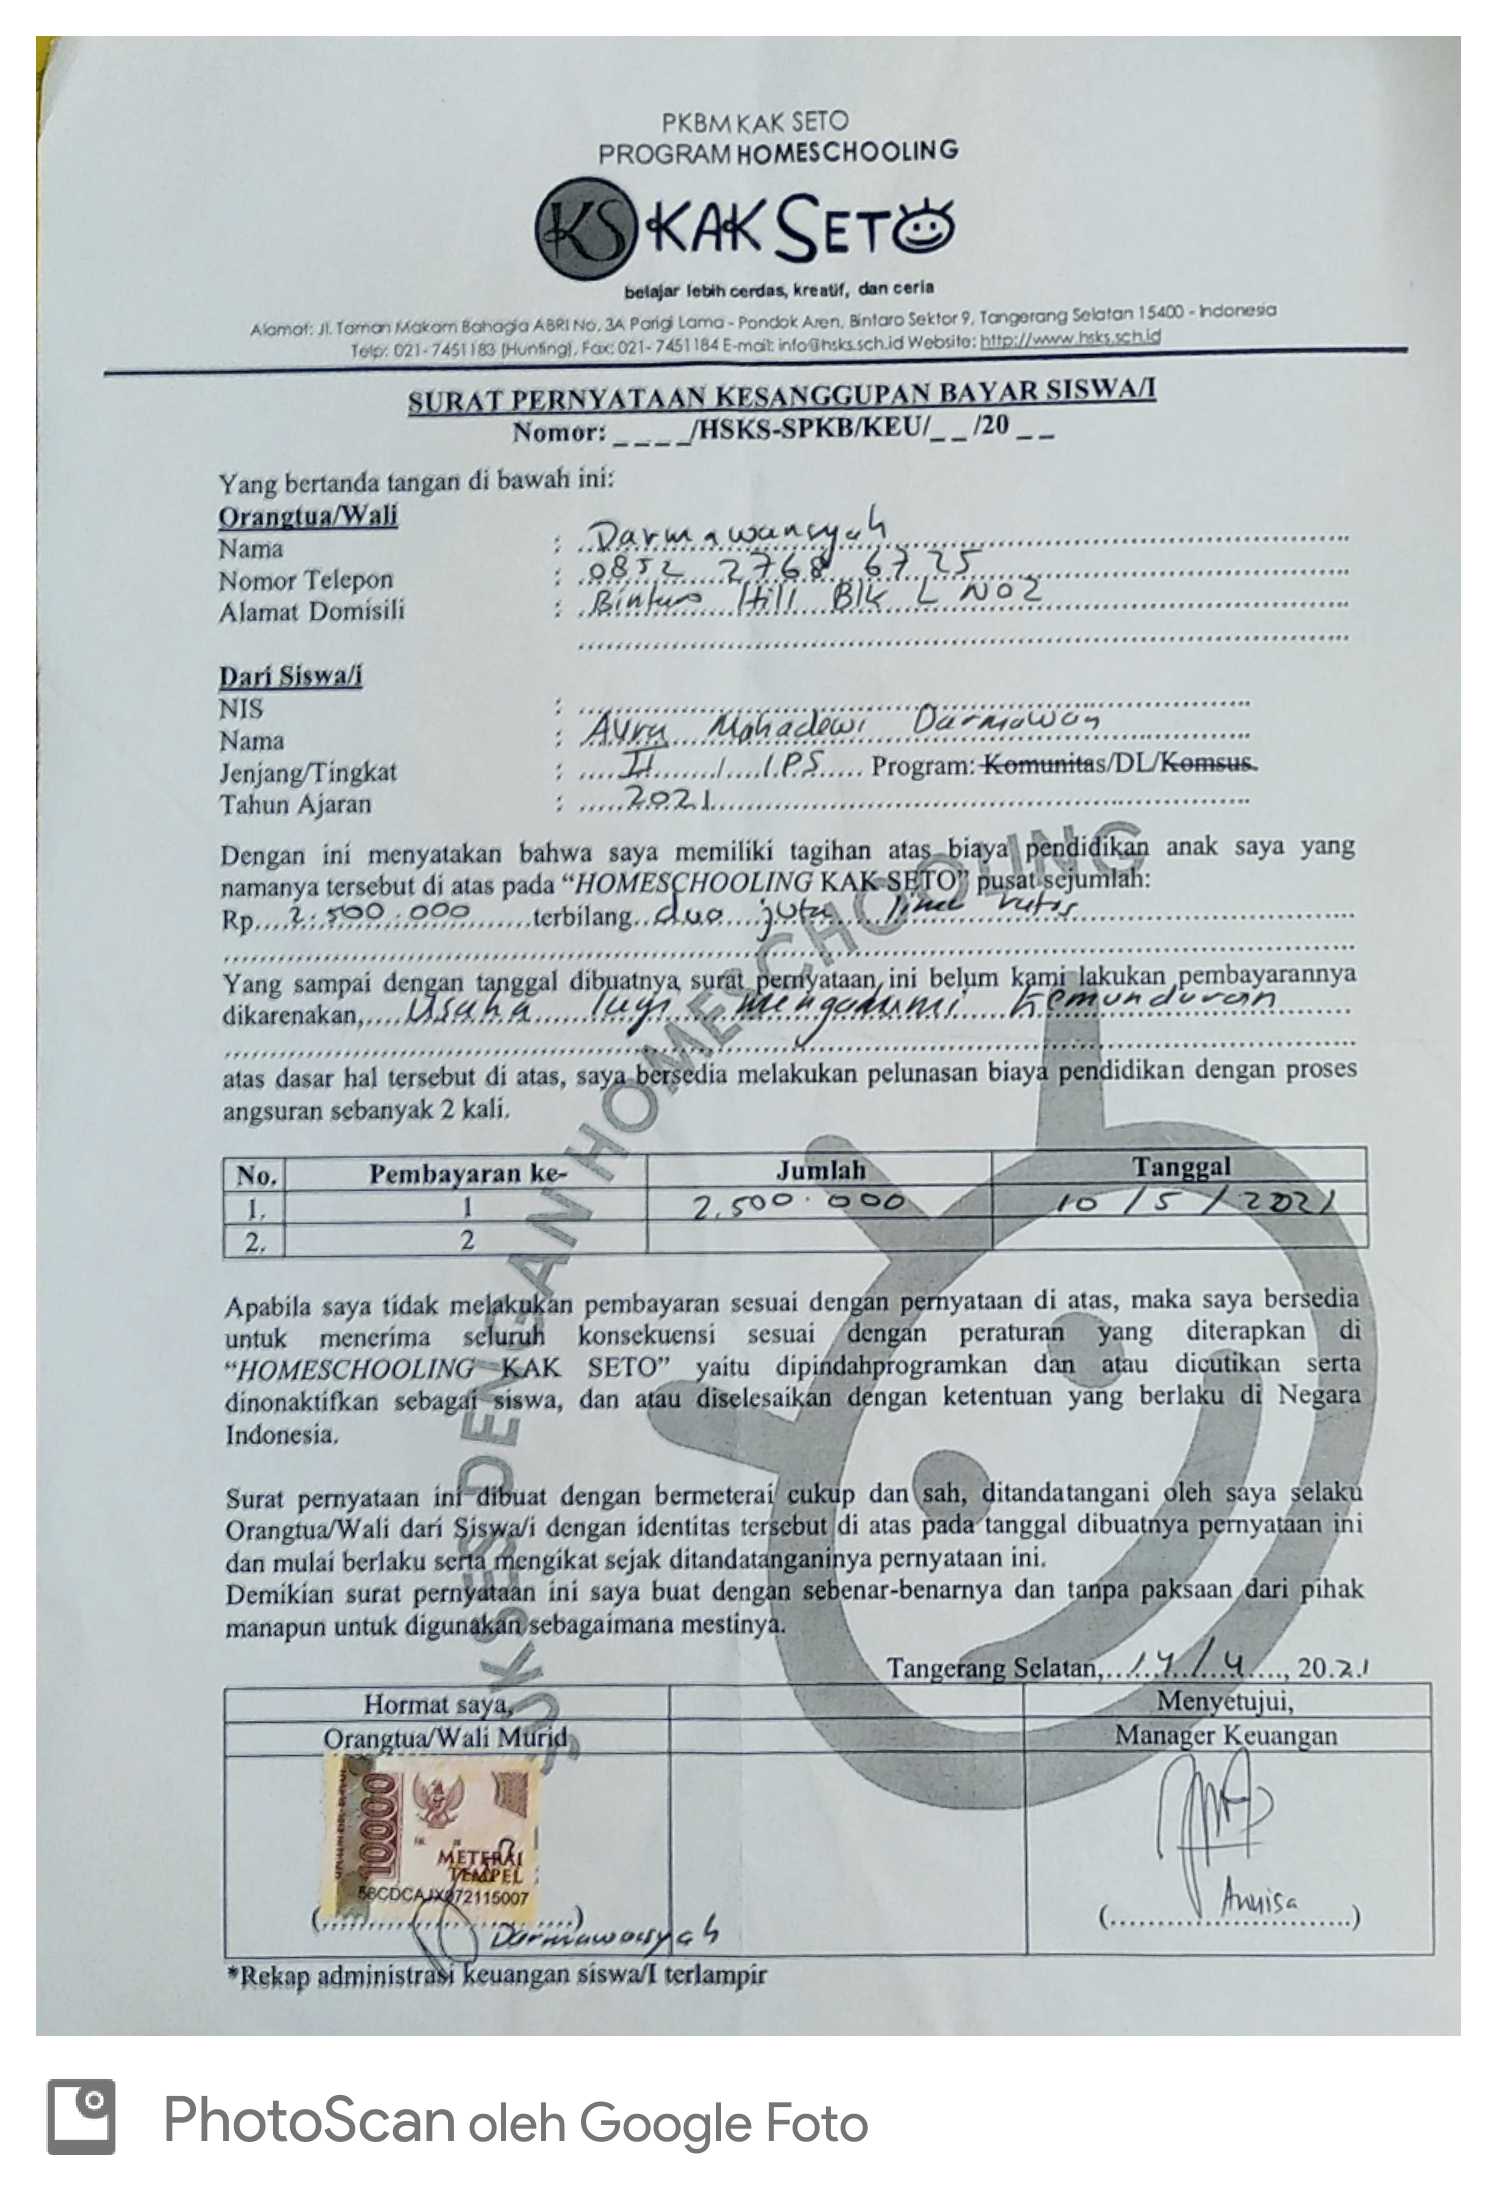 PKBM KAK SETO
PROGRAM HOMESCHOOLING
KS KAK SETO
belajar lebih cerdas, kreatif, dan ceria
Alamat: Jl. Taman Makam Bahagia ABRI No. 3A Parigi Lama - Pondok Aren, Bintaro Sektor 9, Tangerang Selatan 15400 - Indonesia
Telp: 021- 7451183 (Hunting), Fax: 021- 7451184 E-mail: info@hsks.sch.id Website: http://www.hsks.sch.id
SURAT PERNYATAAN KESANGGUPAN BAYAR SISWA/I
Nomor: _ _ _ _/HSKS-SPKB/KEU/_ _ /20 _ _
Yang bertanda tangan di bawah ini:
Orangtua/Wali
Nama : Darmawansyah
Nomor Telepon : 0852 2768 6725
Alamat Domisili : Bintaro Hill Blk L NO2
Dari Siswa/i
NIS :
Nama : Aura Mahadewi Darmawan
Jenjang/Tingkat : II / IPS Program: Komunitas/DL/Komsus.
Tahun Ajaran : 2021
Dengan ini menyatakan bahwa saya memiliki tagihan atas biaya pendidikan anak saya yang
namanya tersebut di atas pada “HOMESCHOOLING KAK SETO” pusat sejumlah:
Rp 2.500.000 terbilang dua juta lima ratus
Yang sampai dengan tanggal dibuatnya surat pernyataan ini belum kami lakukan pembayarannya
dikarenakan, Usaha lagi mengalami kemunduran
atas dasar hal tersebut di atas, saya bersedia melakukan pelunasan biaya pendidikan dengan proses
angsuran sebanyak 2 kali.
No. Pembayaran ke- Jumlah Tanggal
1. 1 2.500.000 10 / 5 / 2021
2. 2
Apabila saya tidak melakukan pembayaran sesuai dengan pernyataan di atas, maka saya bersedia
untuk menerima seluruh konsekuensi sesuai dengan peraturan yang diterapkan di
“HOMESCHOOLING KAK SETO” yaitu dipindahprogramkan dan atau dicutikan serta
dinonaktifkan sebagai siswa, dan atau diselesaikan dengan ketentuan yang berlaku di Negara
Indonesia.
Surat pernyataan ini dibuat dengan bermeterai cukup dan sah, ditandatangani oleh saya selaku
Orangtua/Wali dari Siswa/i dengan identitas tersebut di atas pada tanggal dibuatnya pernyataan ini
dan mulai berlaku serta mengikat sejak ditandatanganinya pernyataan ini.
Demikian surat pernyataan ini saya buat dengan sebenar-benarnya dan tanpa paksaan dari pihak
manapun untuk digunakan sebagaimana mestinya.
Tangerang Selatan, 14 / 4, 2021
Hormat saya, Menyetujui,
Orangtua/Wali Murid Manager Keuangan
10000
METERAI
TEMPEL
Darmawansyah
Annisa
*Rekap administrasi keuangan siswa/I terlampir
SUKSES DENGAN HOMESCHOOLING
PhotoScan oleh Google Foto